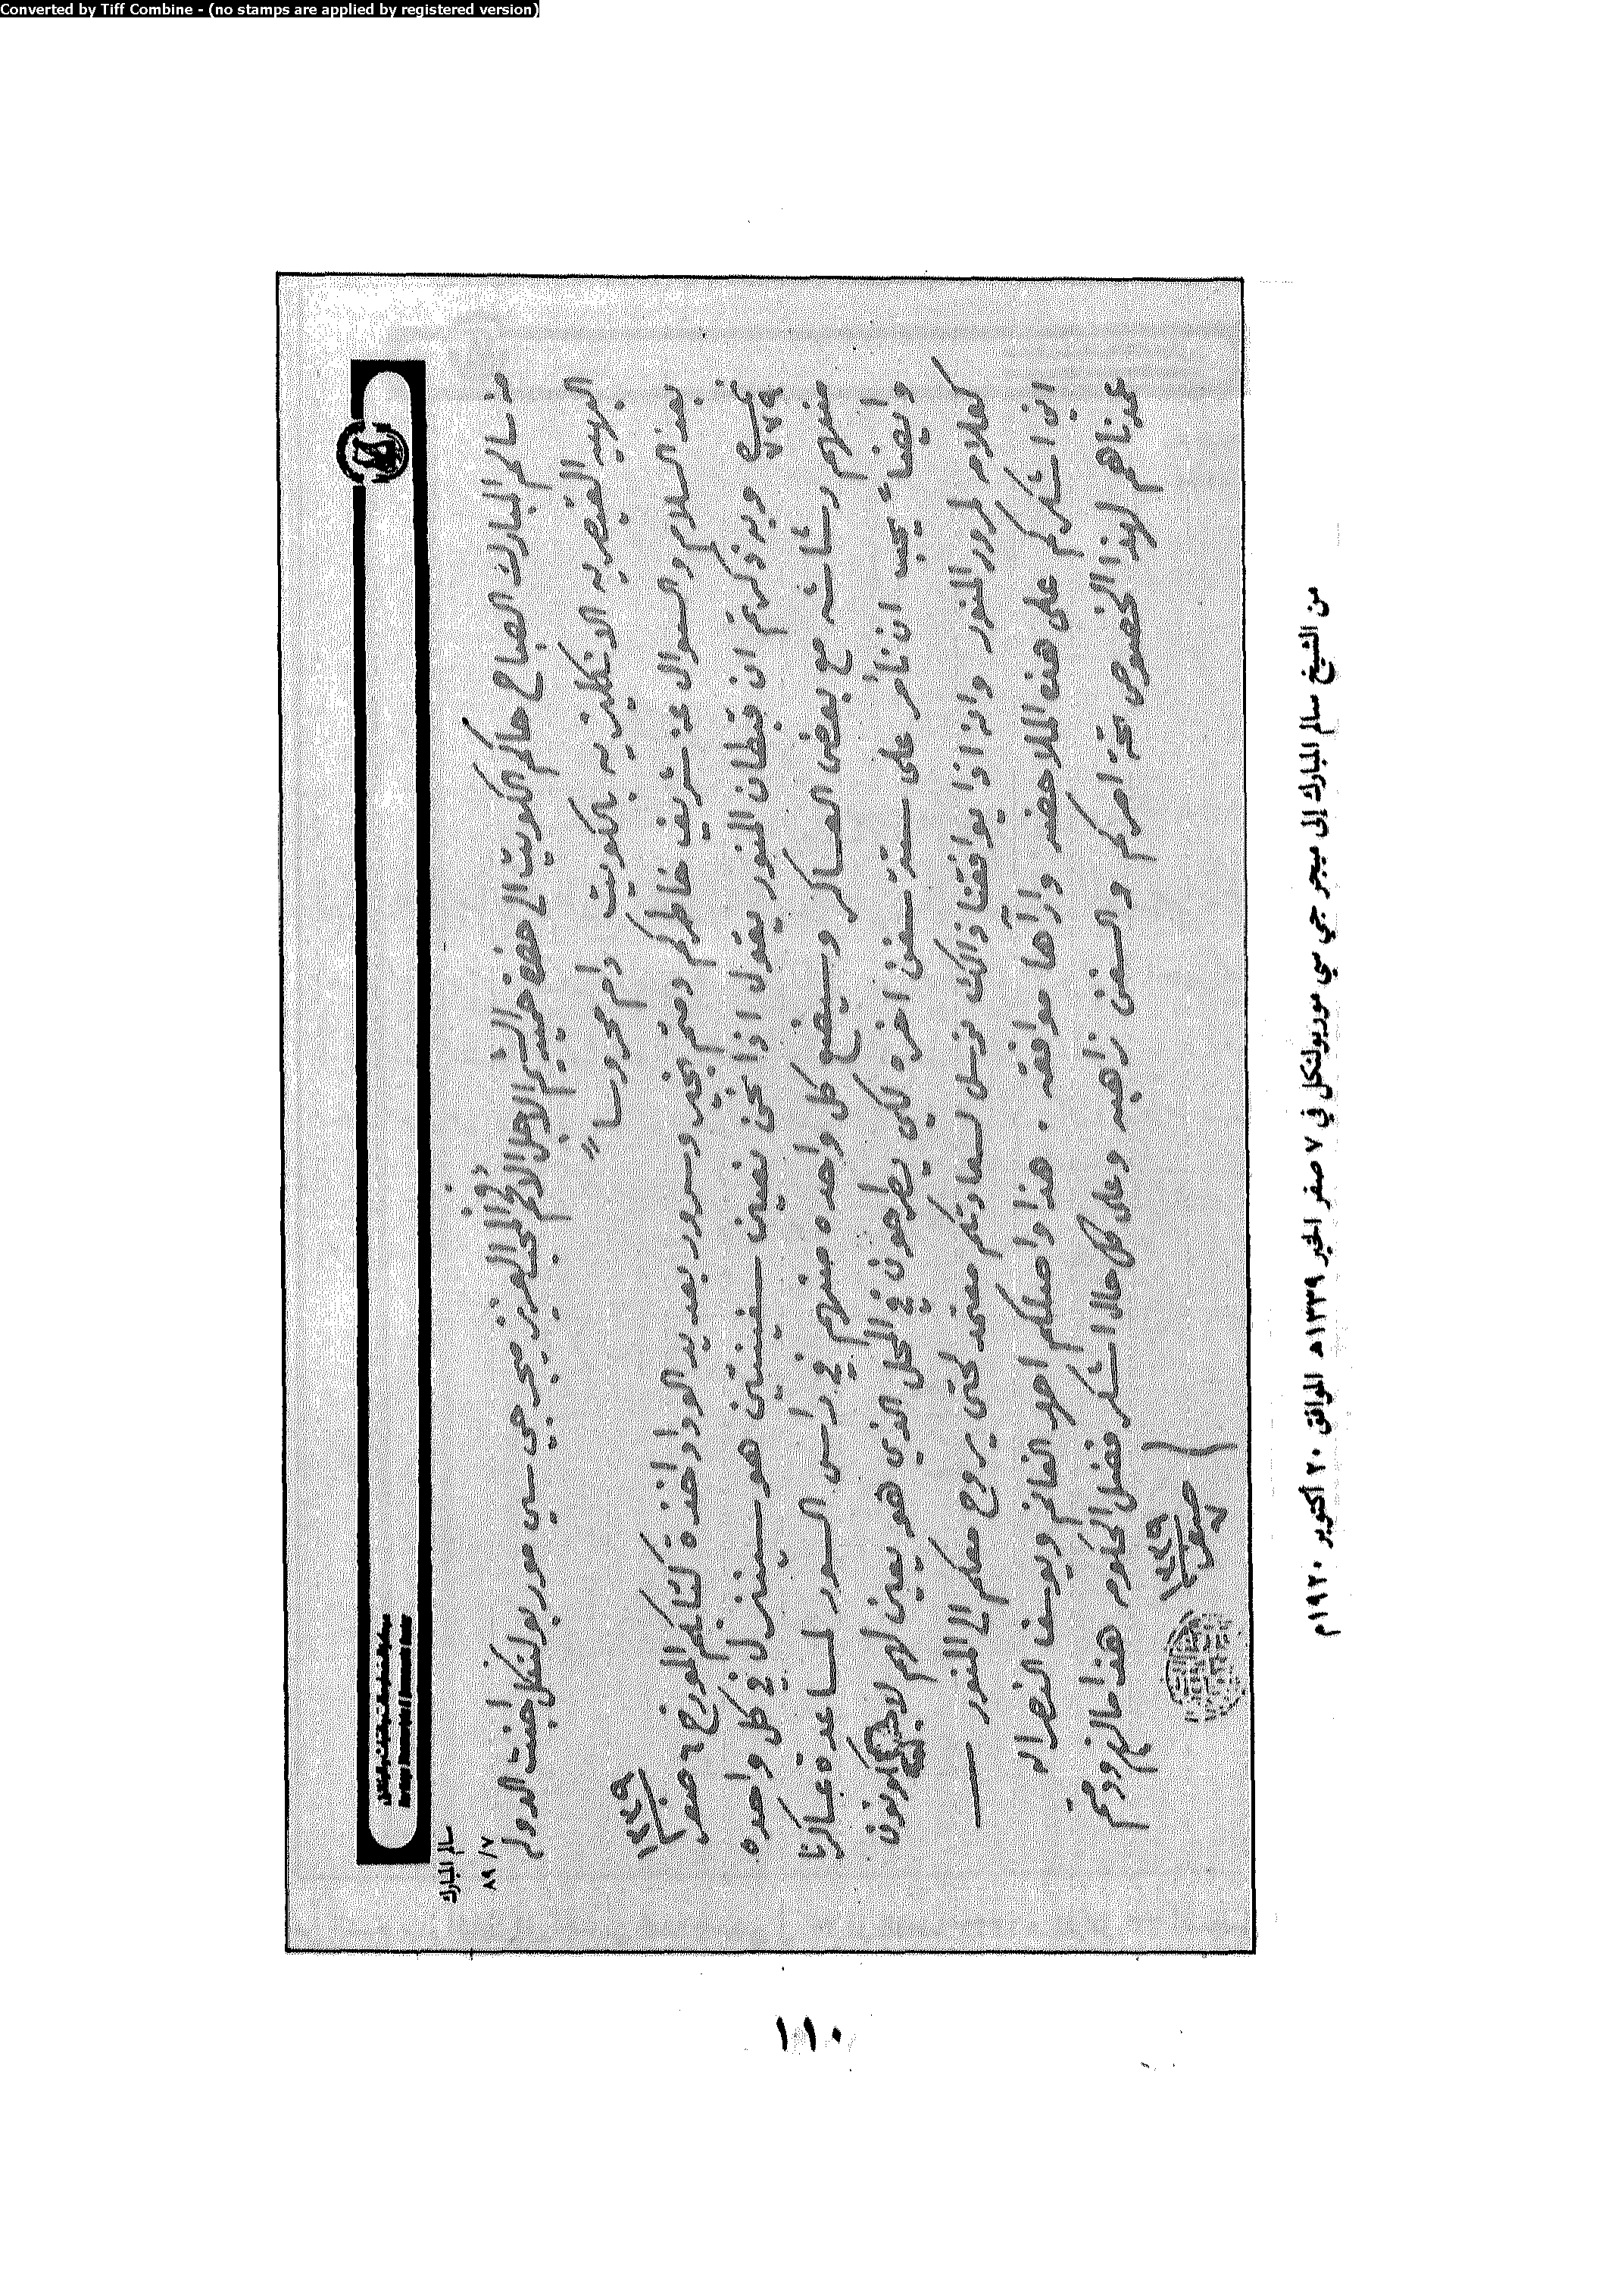 Converted by Tiff Combine - (no stamps are applied by registered version)
سالم المبارك
٨٩/٧
من سالم المبارك الصباح حاكم الكويت الى حضرة حميد الشيم الاجل الافخم المحب العزيز ميجر جي سي مور بولتكل اجنت الدولة
البهيه القيصريه الانكليزيه بالكويت دام محروساً
بعد السلام والسوال عن شريف خاطركم دمتم بخير وسرور بعده بيد الوداد اخذت كتابكم المورخ ٦ صفر ١٣٣٩
نمرة ٧٧٩ وبه ذكرتم ان قبطان المنور يقول اذا نحن نعين سفينتين هو سينزل في كل واحده
منهم رشاشه مع بعض العساكر وسيضع كل واحده منهم في راس السور لمساعدة عساكرنا
وايضاً يجب ان نأمر على ستة سفن اخره لكي يطرحون في المحل الذي هو يعينه لهم لاجل يكونون
كعلامه لمرور المنور وان اذا يوافقنا ذالك نرسل لسعادتكم معتمد لحتى يروح معكم الى المنور
اني اشكركم على هذه الملاحضه وارآها موافقه . هذا واصلكم احمد الغانم ويوسف النصرالله
عمدناهم لهذا الخصوص تحت امركم والسفن زاهبه وعلى كل حال اشكر فضل الحكومه هذا مالزم ودمتم
٧ صفر ١٣٣٩
من الشيخ سالم المبارك إلى ميجر جي سي موربولتكل في ٧ صفر الخير ١٣٣٩هـ الموافق ٢٠ أكتوبر ١٩٢٠م
١١٠